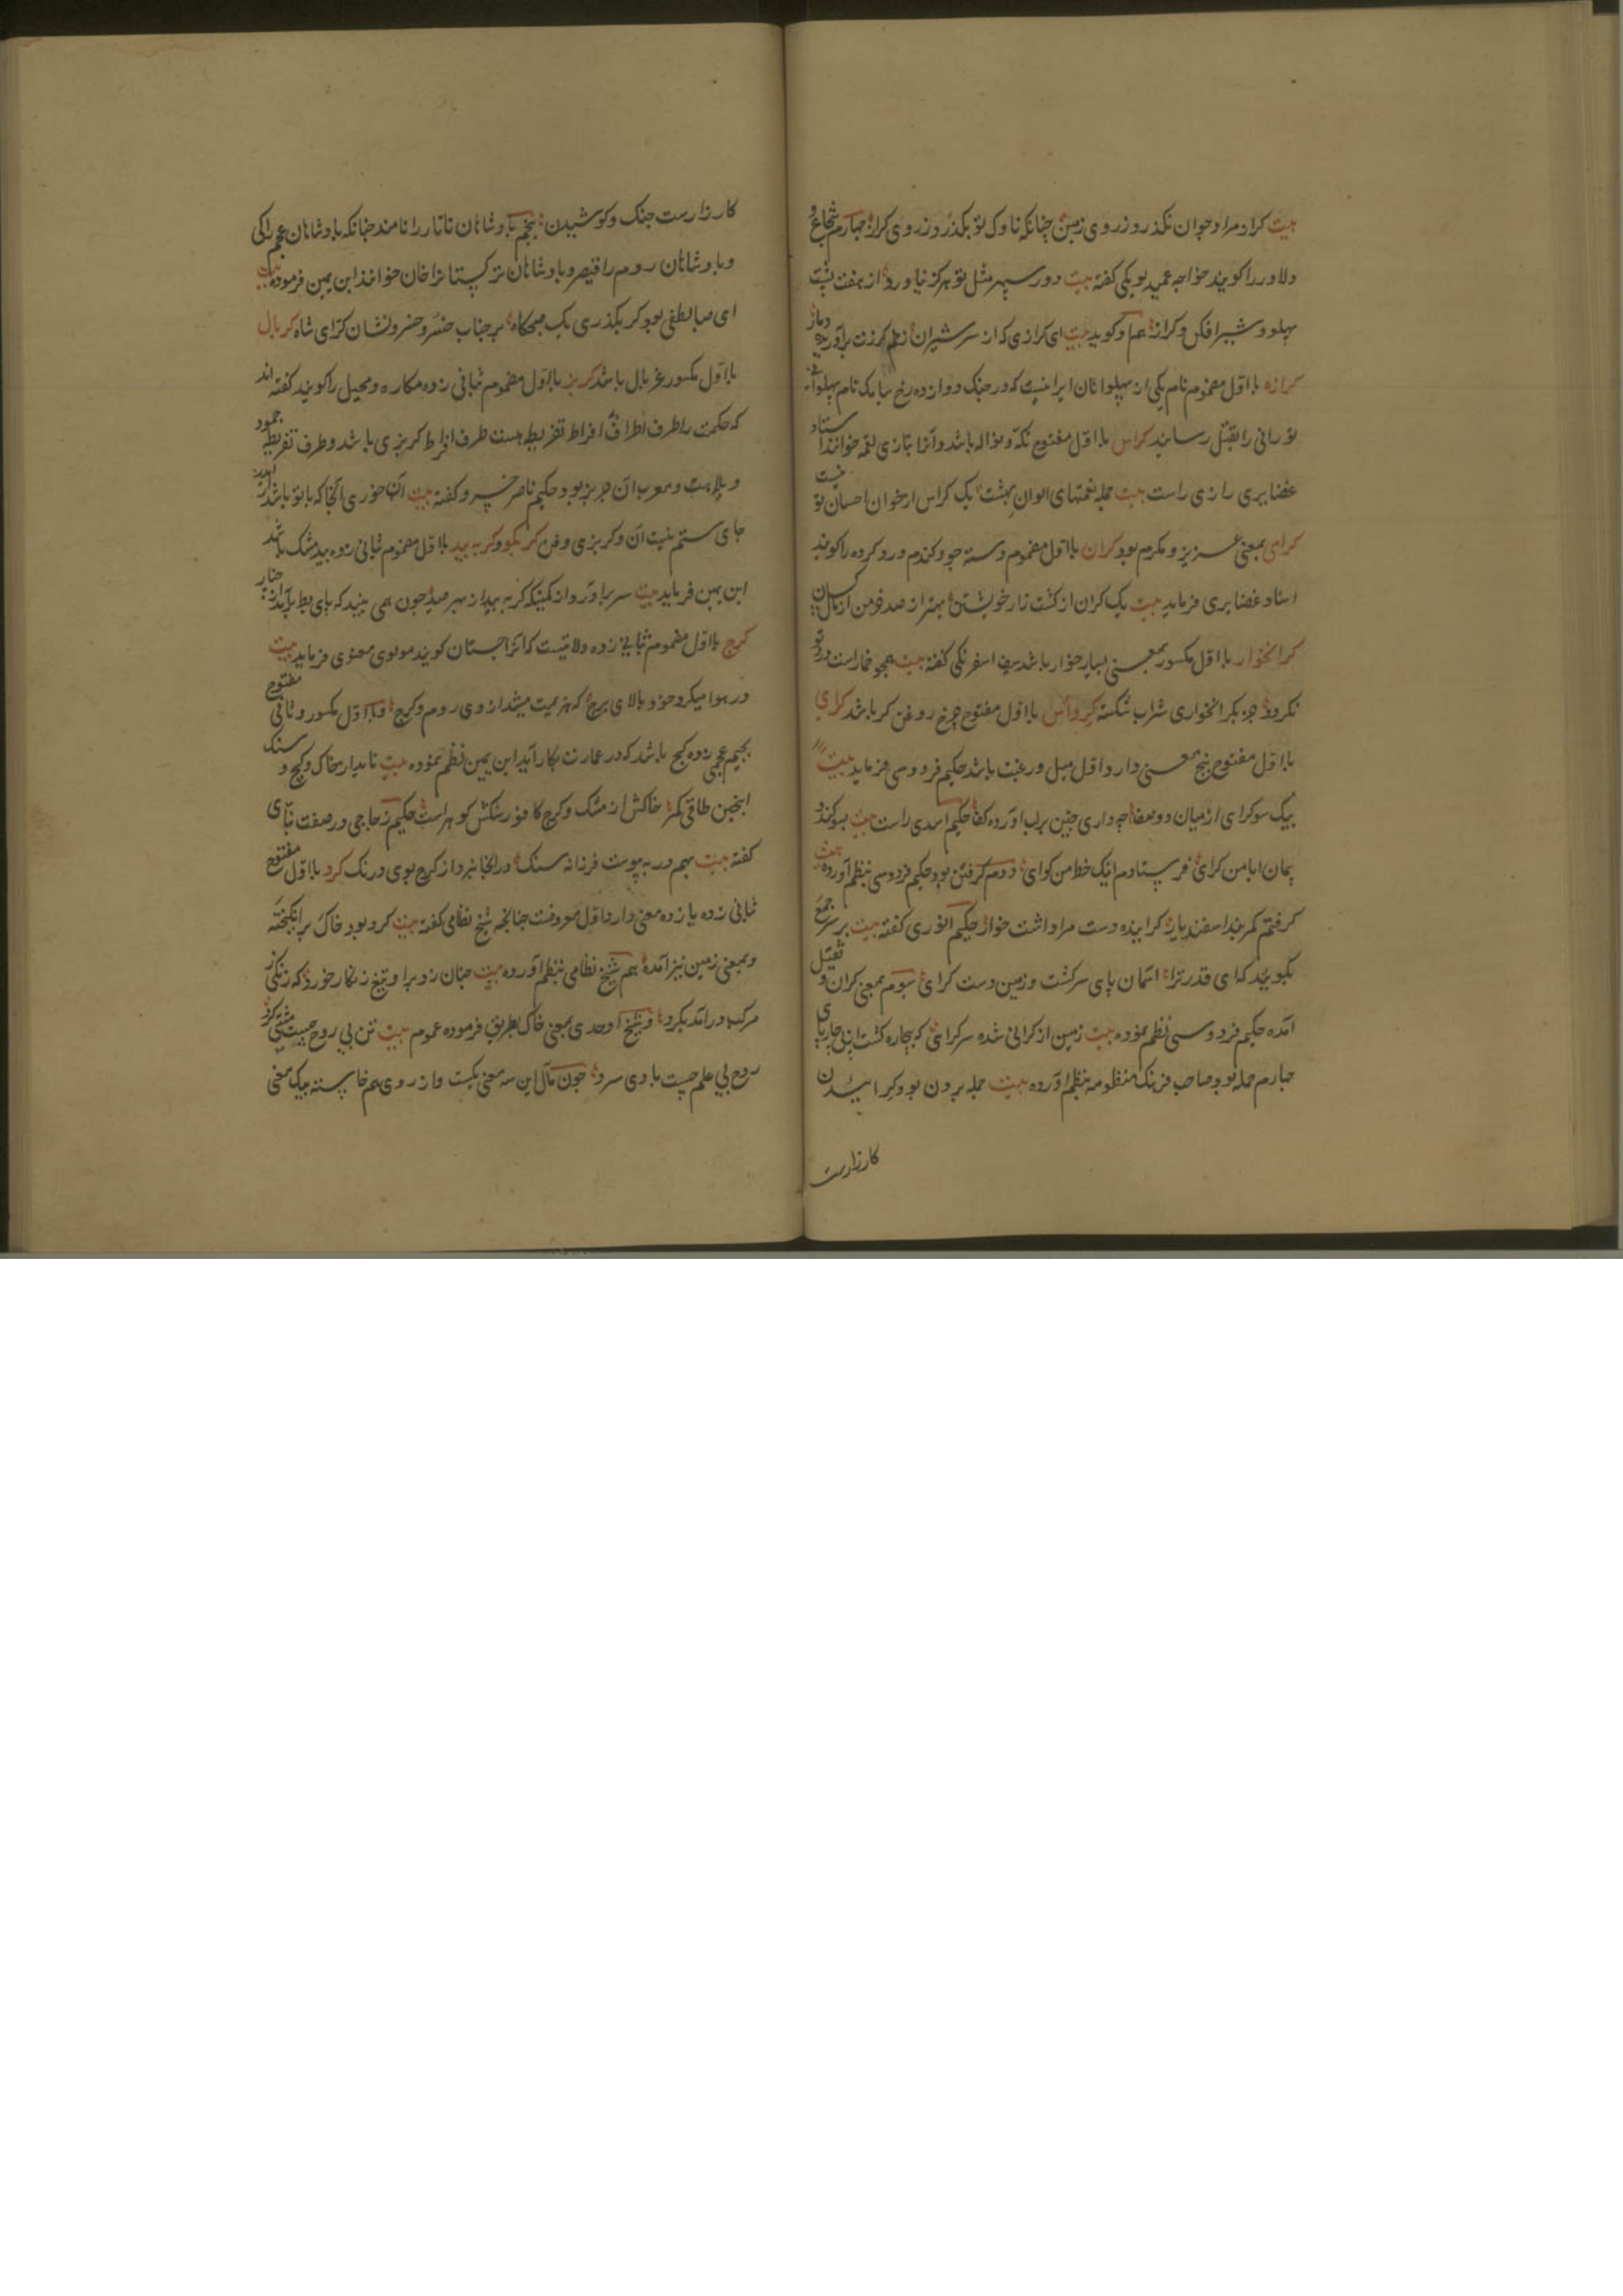 بیت کراد مراد جوان نکذرد ز روی زمین چنانکه ناوک تو بکذرد ز روی کراز چهارم شجاع و
دلاور را کویند خواجه عمید لوبکی کفته بیت دور سپهر مثل تو هرکز نیاورد از هفت پشت
پهلو و شیر افکن و کراز هم او کوید بیت ای کرازی که از سر شیران زخم کرزت برآوریده دمار
کرازه با اول مضموم نام یکی از پهلوانان ایرانیست که در جنک دوازده رخ سیامک نام پهلوان
تورانی را بقتل رسانید کراس با اول مفتوح تکه و نواله باشد و آنرا بتازی لقمه خوانند استاد
غضایری رازی راست بیت جمله نعمتهای الوان بهشت یک کراس از خوان احسان تو نیست
کرای بمعنی عزیز و مکرم بود کران با اول مضموم دسته جو و کندم درو کرده را کویند
استاد غضایری فرماید بیت یک کران از کشت زار خویشتن بهتر از صد خرمن از مال کسان
کرانخوار با اول مکسور بمعنی بسیار خوار باشد سیف اسفرنکی کفته بیت همچو خمارست درد تو
نکرود جز بکرانخواری شراب شکسته کرواس با اول مفتوح چرخ روغن کر باشد کرای
با اول مفتوح پنج معنی دارد اول میل و رغبت باشد حکیم فردوسی فرماید بیت
بیک سو کرای از میان دو صف چه داری چنین بر لب آورده کف حکیم اسدی راست بیت بسوکند و
پیمان ابا من کرای فرستادم اینک خط من کوای دوم کرفتن بود حکیم فردوسی بنظم آورده بیت
کرفتم کمر بند اسفندیار کراینده دست مرا داشت خوار حکیم انوری کفته بیت بر سر جمع
بکویند که ای قدر ترا آسمان پای سرکشت و زمین دست کرای سوم بمعنی کران و ثقیل
آمده حکیم فردوسی نظم نموده بیت زمین از کرانی شده سرکرای که بیچاره کشت این چارپای
چهارم حمله بود صاحب فرهنک منظومه بنظم آورده بیت حمله بردن بود کراییدن
کارزارست
کارزارست جنک و کوشیدن پنجم پادشاهان تاتار را نامند چنانکه پادشاهان عجم را کی
و پادشاهان روم را قیصر و پادشاهان ترکستان را خان خوانند ابن یمین فرموده بیت
ای صبا لطفی بود کر بکذری یک صبحکاه بر جناب خسرو خسرو نشان کرای شاه کربال
با اول مکسور غربال باشد کربز با اول مضموم بثانی زده مکاره و محیل را کویند کفته اند
که حکمت را طرف اطراف افراط تفریط هست طرف افراط کربزی باشد و طرف تفریط جمود
و بلاهت و معرب آن جربز بود حکیم ناصر خسرو کفته بیت آن خوری آنجا که با تو باشد ایدر
جای ستم نیست آن و کربزی و فن کربکو و کربه بید با اول مضموم بثانی زده بید مشک باشد
ابن یمین فرماید بیت سر برآورد از کمینکه کربه بید از بهر صید چون همی بیند که پای بط برآمد از چنار
کرج با اول مضموم بثانی زده ولایتیست که آنرا کرجستان کویند مولوی معنوی فرماید بیت
در هوا میکرد خود بالای برج که هزیمت میشد از وی روم و کرج و با اول مکسور و ثانی مفتوح
بجیم عجمی زده کچ باشد که در عمارت بکار آید ابن یمین نظم نموده بیت نابدار خاک و کچ و سنک
اینچنین طاقی مکر خاکش از مشک و کرچ کافور سنکش کوهراست حکیم زجاجی در صفت بنای
کفته بیت بهم در به پیوست فرزانه سنک در انجا نبرد از کرچ بوی و رنک کرد با اول مفتوح
ثانی زده یازده معنی دارد اول معروفست چنانچه شیخ نظامی کفته بیت کرد بود خاک برانکیخته
و بمعنی زمین نیز آمده هم شیخ نظامی بنظم آورده بیت چنان زد برو تیغ زنکار خورد که زنکی ز
مرکب در آمد بکرد و شیخ اوحدی بمعنی خاک بطریق فرموده عموم بیت تن بی روح چیست مشتی کرد
روح بی علم چیست بادی سرد چون مآل این سه معنی یکیست و از روی هم خاسته بیک معنی